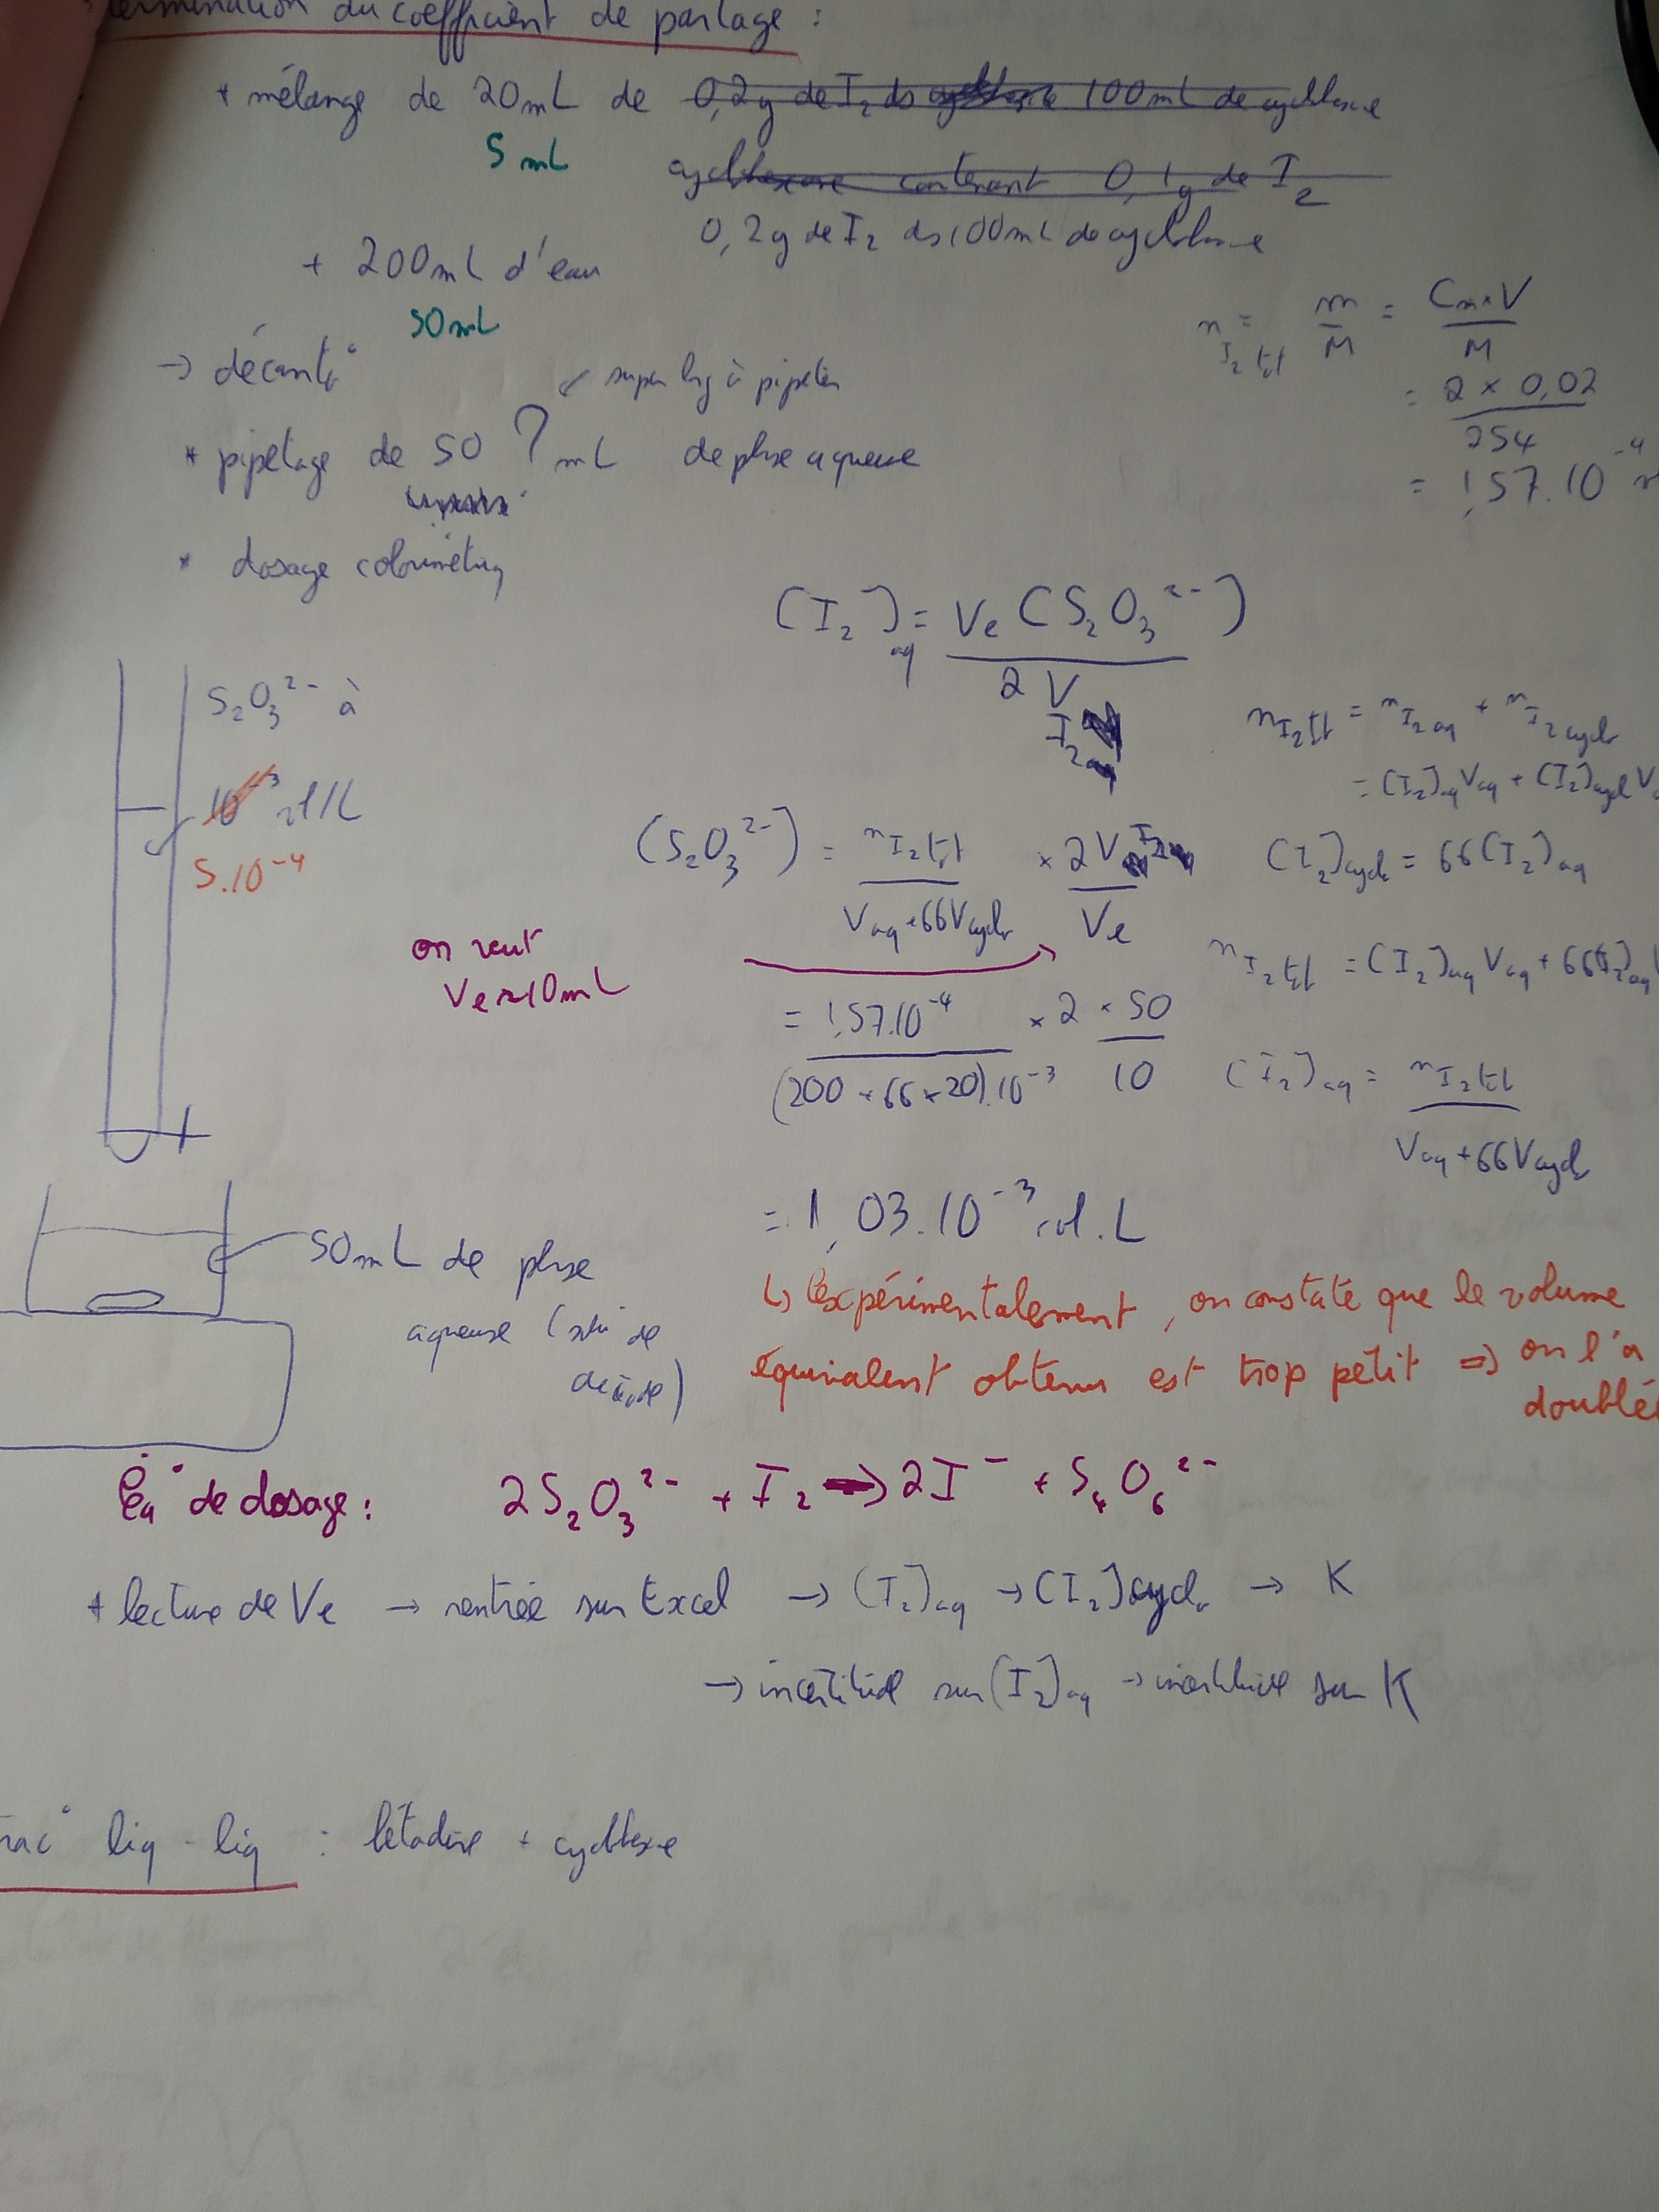 termination du coefficient de partage :
* mélange de 20mL de 0,2g de I₂ ds 100mL de cyclohexane
5 mL
cyclohexane contenant 0,1g de I₂
0,2g de I₂ ds 100mL de cyclohexane
+ 200mL d'eau
50mL
n I₂ tot = m/M = Cm×V/M
= 2 × 0,02 / 254
= 1,57.10⁻⁴
→ décant°
↙ super lng à pipeter
* pipetage de 50 ? mL de phase aqueuse
* dosage colorimétriq
(I₂)aq = Ve (S₂O₃²⁻) / 2 V I₂
S₂O₃²⁻ à
10⁻³ mol/L
5.10⁻⁴
n I₂ tot = n I₂ aq + n I₂ cyclo
= (I₂)aq Vaq + (I₂)cycl V
(S₂O₃²⁻) = n I₂ tot / Vaq + 66Vcyclo × 2V I₂ / Ve
(I₂)cyclo = 66 (I₂)aq
on veut
Ve ≈ 10mL
n I₂ tot = (I₂)aq Vaq + 66(I₂)aq
= 1,57.10⁻⁴ / (200 + 66 × 20).10⁻³ × 2 × 50 / 10
(I₂)aq = n I₂ tot / Vaq + 66Vcyclo
= 1,03.10⁻³ mol.L
50mL de phase
aqueuse
↳ Expérimentalement, on constate que le volume
équivalent obtenu est trop petit ⇒ on l'a
doublé
Éq° de dosage : 2S₂O₃²⁻ + I₂ → 2I⁻ + S₄O₆²⁻
* lecture de Ve → rentrée sur Excel → (I₂)aq → (I₂)cyclo → K
→ incertitude sur (I₂)aq → incertitude sur K
rac° liq - liq : bétadine + cyclohexane